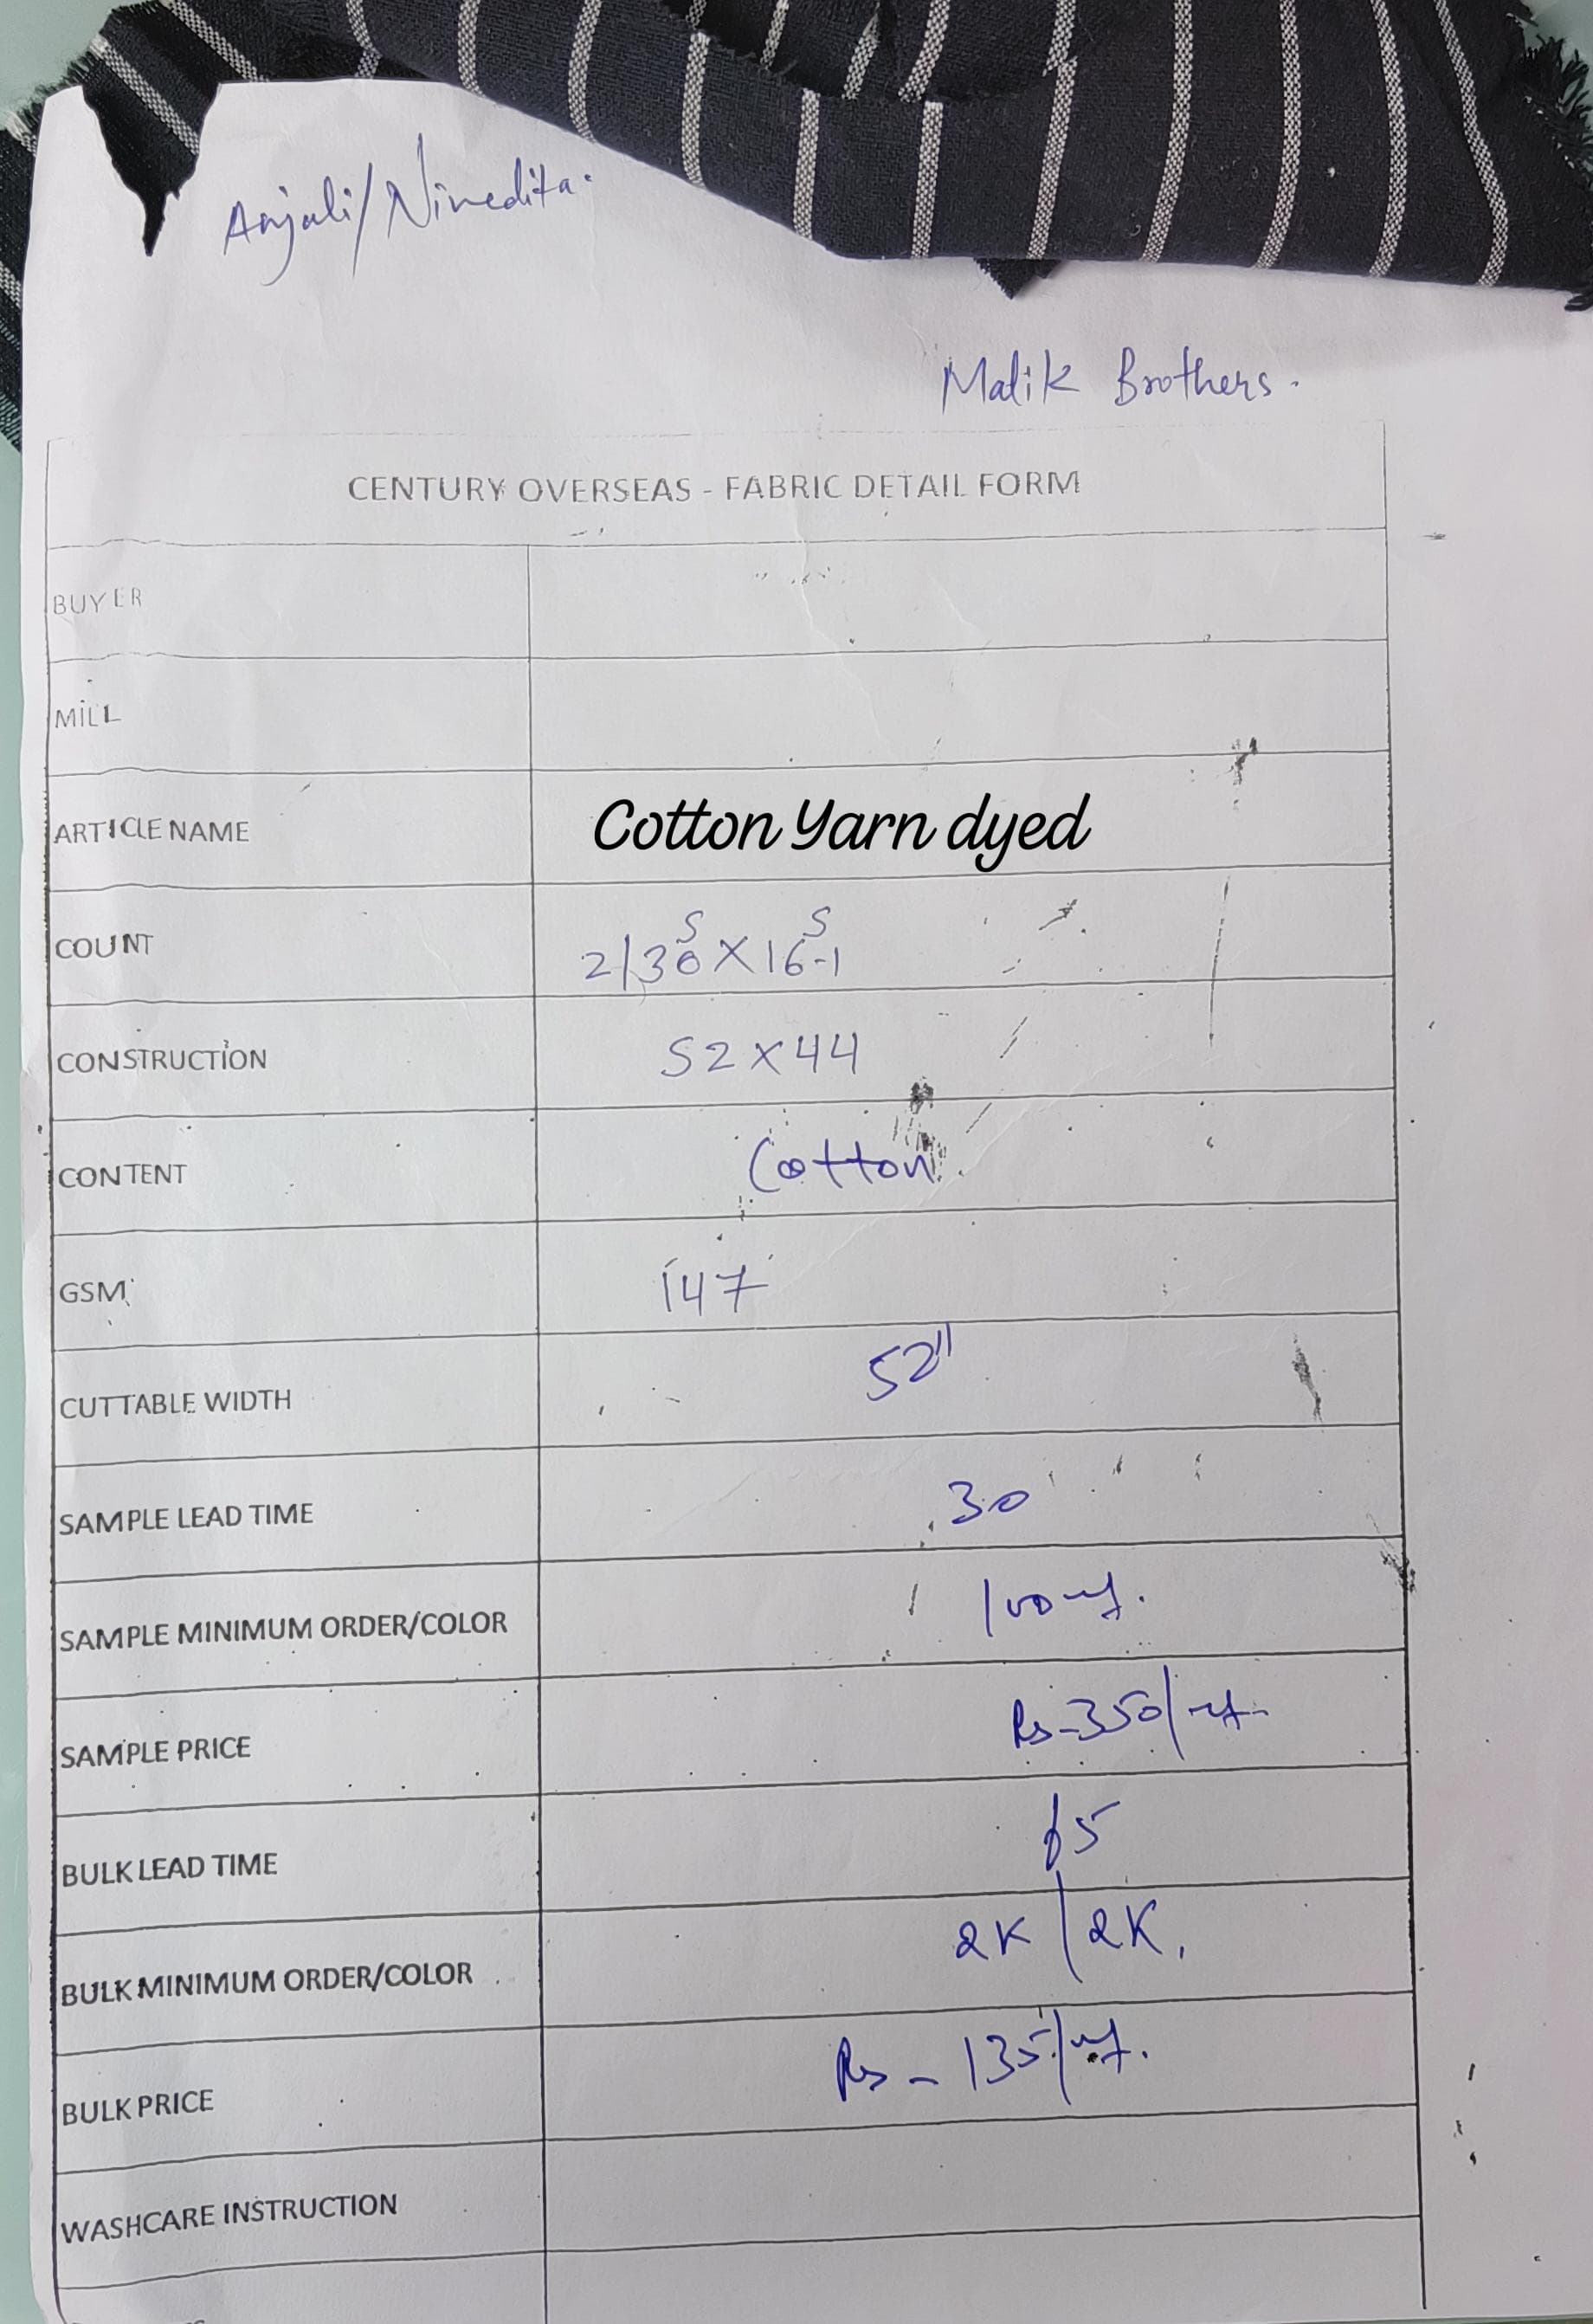 Anjali/Nivedita.
Malik Brothers.
CENTURY OVERSEAS - FABRIC DETAIL FORM
BUYER
MILL
ARTICLE NAME Cotton Yarn dyed
COUNT 2/30s X 16s-1
CONSTRUCTION 52 X 44
CONTENT Cotton
GSM 147
CUTTABLE WIDTH 52"
SAMPLE LEAD TIME 30
SAMPLE MINIMUM ORDER/COLOR 100
SAMPLE PRICE Rs-350/
BULK LEAD TIME 65
BULK MINIMUM ORDER/COLOR 2K/2K.
BULK PRICE Rs - 135/
WASHCARE INSTRUCTION